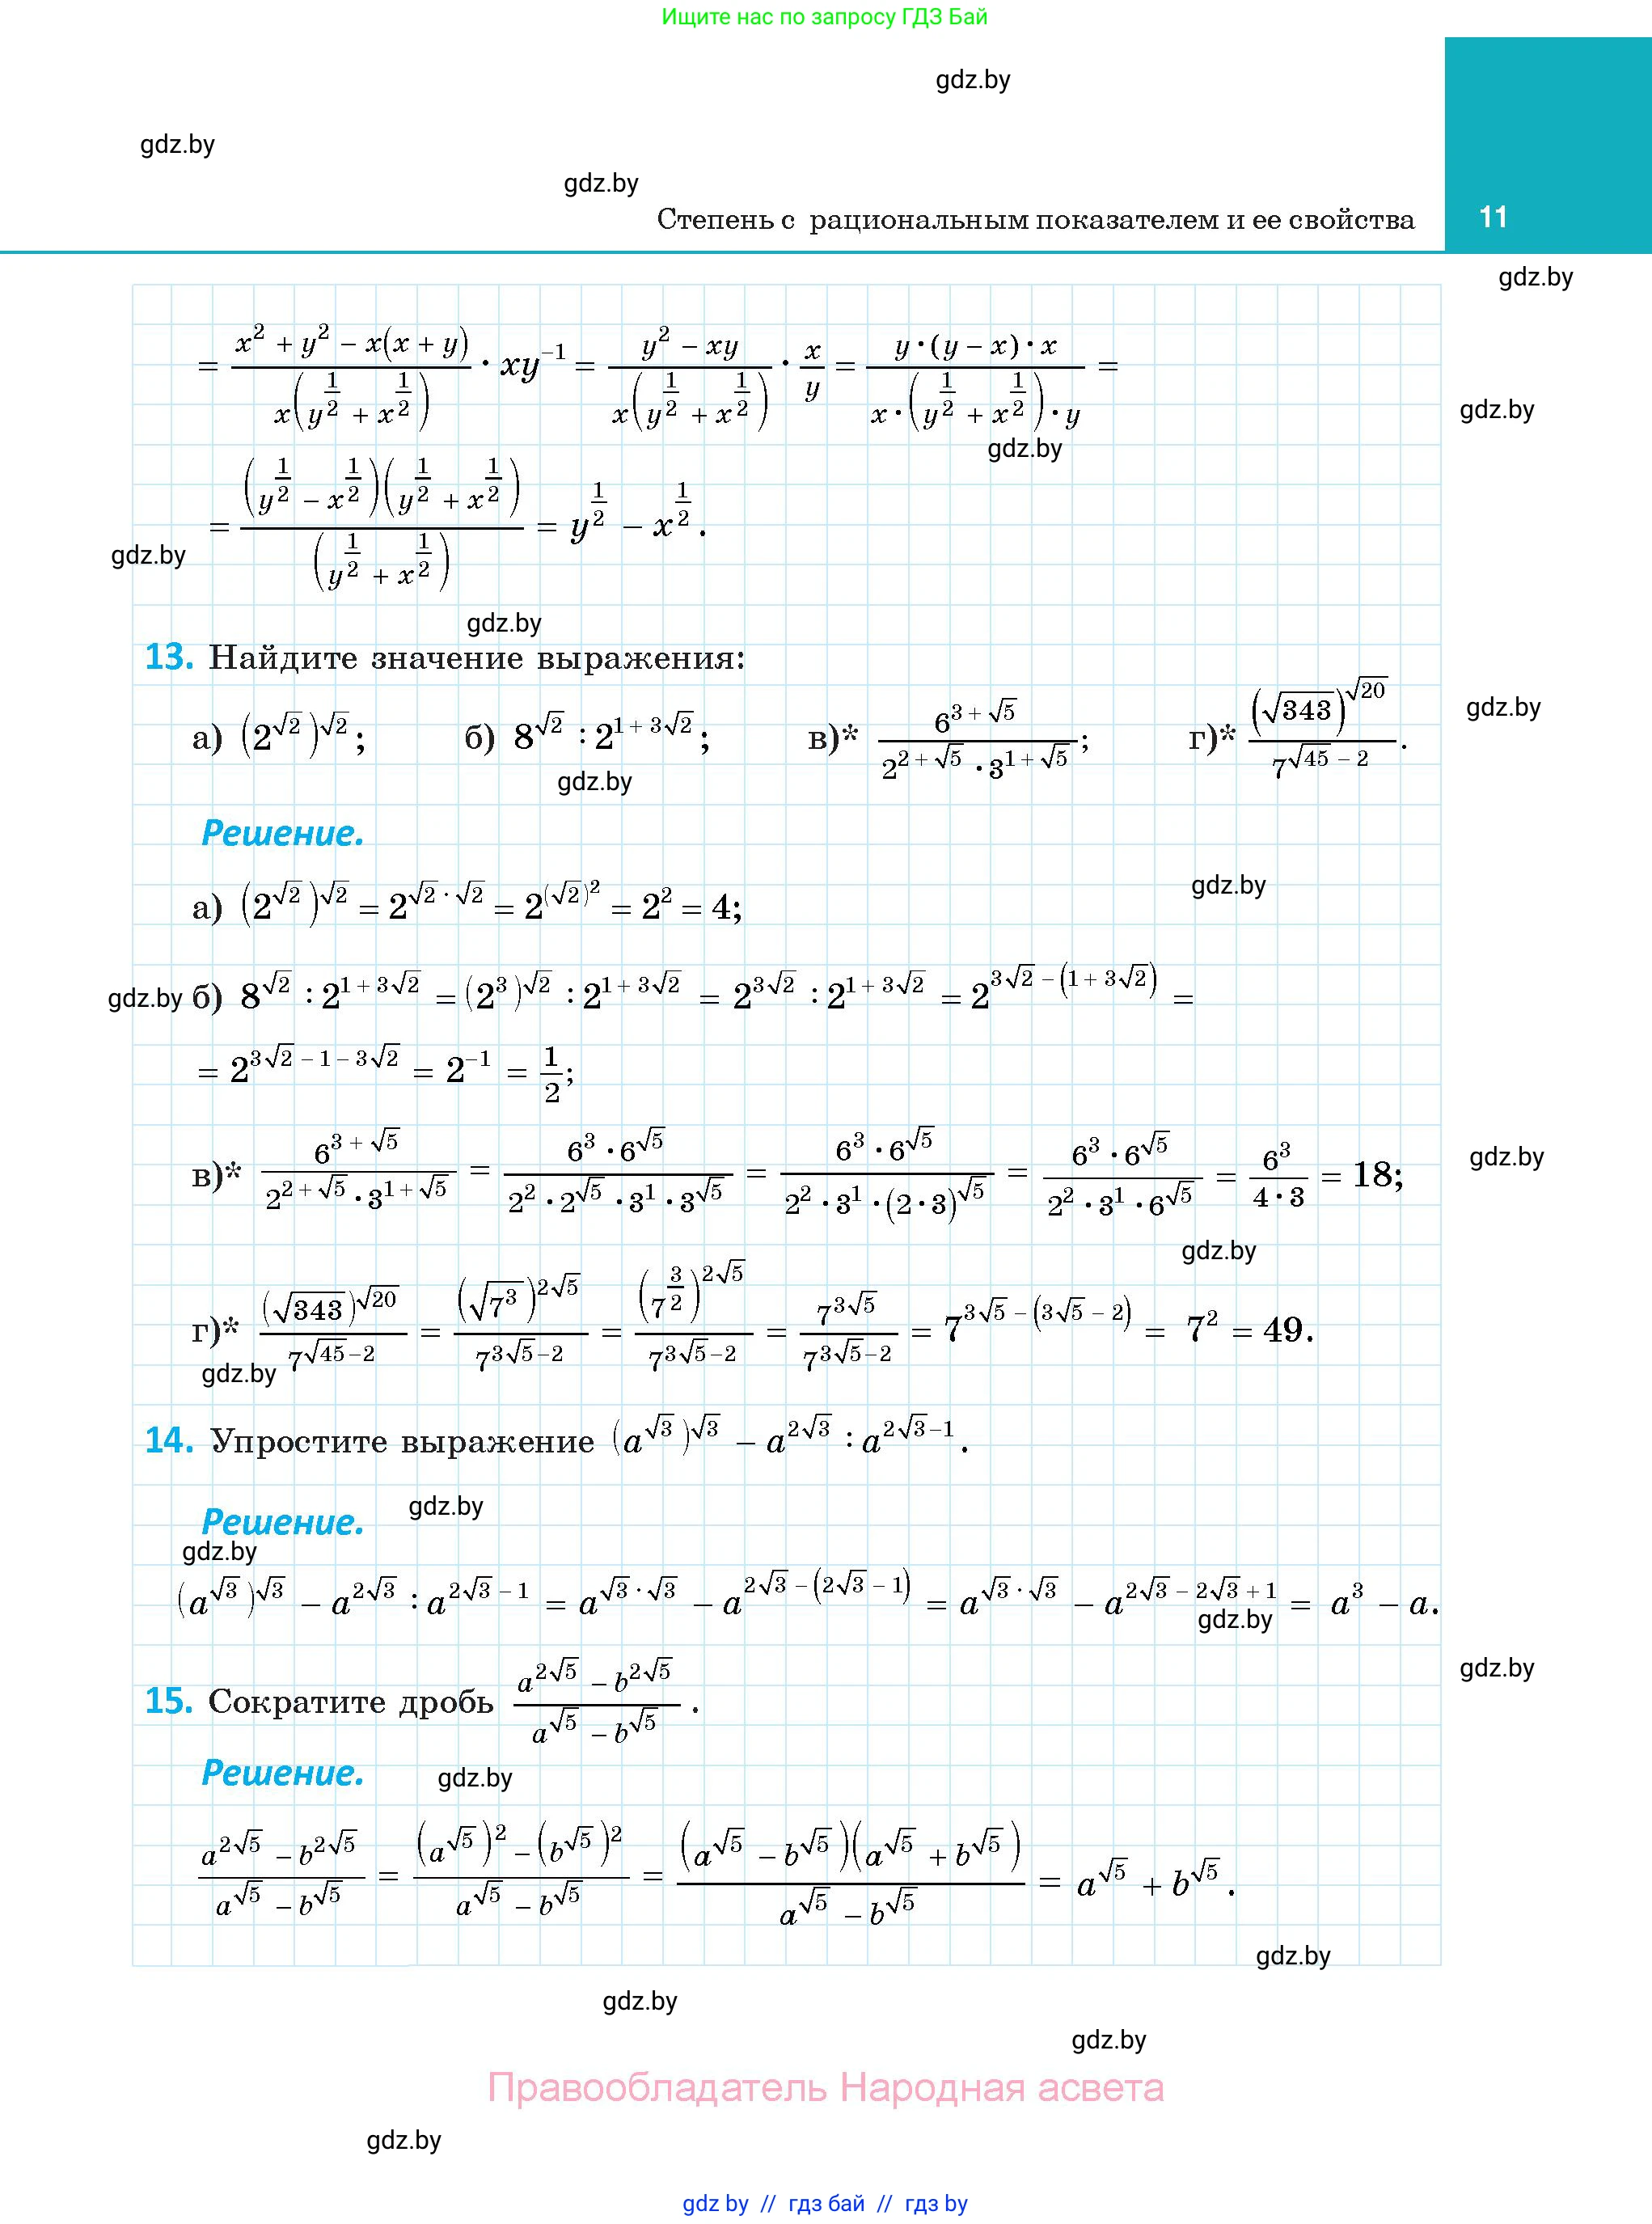 Ищите нас по запросу ГДЗ Бай
gdz.by
gdz.by
gdz.by
Степень с рациональным показателем и ее свойства 11
gdz.by
= \frac{x^2 + y^2 - x(x + y)}{x(y^{\frac{1}{2}} + x^{\frac{1}{2}})} · xy^{-1} = \frac{y^2 - xy}{x(y^{\frac{1}{2}} + x^{\frac{1}{2}})} · \frac{x}{y} = \frac{y·(y - x)·x}{x·(y^{\frac{1}{2}} + x^{\frac{1}{2}})·y} =
gdz.by
gdz.by
= \frac{(y^{\frac{1}{2}} - x^{\frac{1}{2}})(y^{\frac{1}{2}} + x^{\frac{1}{2}})}{(y^{\frac{1}{2}} + x^{\frac{1}{2}})} = y^{\frac{1}{2}} - x^{\frac{1}{2}}.
gdz.by
gdz.by
13. Найдите значение выражения:
gdz.by
а) (2^{√2})^{√2}; б) 8^{√2} : 2^{1 + 3√2}; в)* \frac{6^{3 + √5}}{2^{2 + √5}·3^{1 + √5}}; г)* \frac{(√343)^{√20}}{7^{√45 - 2}}.
gdz.by
Решение.
gdz.by
а) (2^{√2})^{√2} = 2^{√2·√2} = 2^{(√2)^2} = 2^2 = 4;
gdz.by
б) 8^{√2} : 2^{1 + 3√2} = (2^3)^{√2} : 2^{1 + 3√2} = 2^{3√2} : 2^{1 + 3√2} = 2^{3√2 - (1 + 3√2)} =
= 2^{3√2 - 1 - 3√2} = 2^{-1} = \frac{1}{2};
gdz.by
в)* \frac{6^{3 + √5}}{2^{2 + √5}·3^{1 + √5}} = \frac{6^3·6^{√5}}{2^2·2^{√5}·3^1·3^{√5}} = \frac{6^3·6^{√5}}{2^2·3^1·(2·3)^{√5}} = \frac{6^3·6^{√5}}{2^2·3^1·6^{√5}} = \frac{6^3}{4·3} = 18;
gdz.by
г)* \frac{(√343)^{√20}}{7^{√45-2}} = \frac{(√7^3)^{2√5}}{7^{3√5-2}} = \frac{(7^{\frac{3}{2}})^{2√5}}{7^{3√5-2}} = \frac{7^{3√5}}{7^{3√5-2}} = 7^{3√5 - (3√5 - 2)} = 7^2 = 49.
gdz.by
14. Упростите выражение (a^{√3})^{√3} - a^{2√3} : a^{2√3-1}.
gdz.by
Решение.
gdz.by
(a^{√3})^{√3} - a^{2√3} : a^{2√3 - 1} = a^{√3·√3} - a^{2√3 - (2√3 - 1)} = a^{√3·√3} - a^{2√3 - 2√3 + 1} = a^3 - a.
gdz.by
gdz.by
15. Сократите дробь \frac{a^{2√5} - b^{2√5}}{a^{√5} - b^{√5}}.
Решение.
gdz.by
\frac{a^{2√5} - b^{2√5}}{a^{√5} - b^{√5}} = \frac{(a^{√5})^2 - (b^{√5})^2}{a^{√5} - b^{√5}} = \frac{(a^{√5} - b^{√5})(a^{√5} + b^{√5})}{a^{√5} - b^{√5}} = a^{√5} + b^{√5}.
gdz.by
gdz.by
gdz.by
Правообладатель Народная асвета
gdz.by
gdz by // гдз бай // гдз by